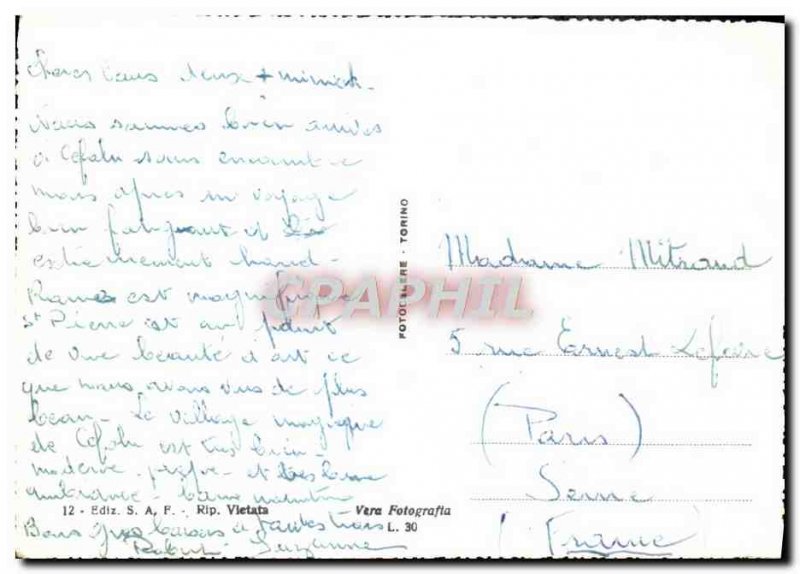 chers tous deux + mimick.
Nous sommes bien arrivés
à Cefalu sans encombre
mais après un voyage
bien fatiguant et
extrêmement chaud -
Rome est magnifique
St Pierre est au point
de vue beauté d'art ce
que nous avons vus de plus
beau - Le village magique
de Cefalu est très bien -
moderne et très bonne
ambiance -
12 - Ediz. S. A. F. - Rip. Vietata
Vera Fotografia
L. 30
Bons gros baisers à toutes trois
Robert Suzanne
FOTOCELERE · TORINO
CPAPHIL
Madame Mitraud
5 rue Ernest Lefevre
(Paris)
Seine
(France)